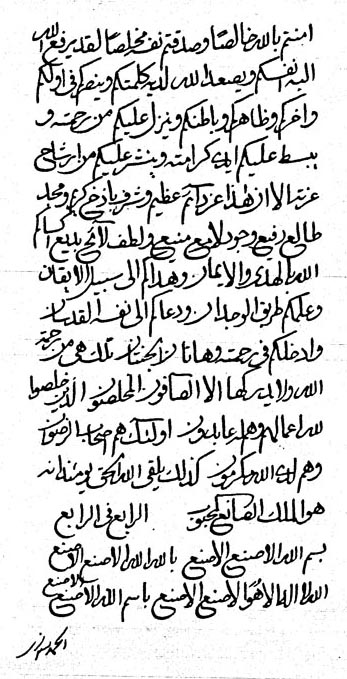 امنتم بالله خالصًا وصدقتم نفسه مخلصًا لقد يرفع الله
اليه انفسكم ويصعد الله لديه كلمتكم وينصركم في اولكم
واخركم وظاهركم وباطنكم وينزل عليكم من رحمته و
يبسط عليكم ايدي كرامته وينشر عليكم من ارشاح
عزته الا ان هذا عز دائم عظيم وشرف باذخ كريم ومجد
طالع رفيع وجود لامع منيع ولطف لائح بديع اكساكم
الله بالهدى والايمان وهداكم الى سبيل الايقان
وعلمكم طريق الوجدان ودعاكم الى نفسه القدسان
وادخلكم في رحمته وهاتان الجنتان تلك هي من رحمة
الله ولا يدركها الا الصافون المخلصون الذين خلصوا
لله اعمالهم وهم له عابدون اولئك هم اصحاب الرضوان
وهم لدى الله مكرمون كذلك يلقى الله الحق يومئذ انه
هو الملك الصانع المحبوب الرابع في الرابع
بسم الله الاصنع الاصنع بالله الله الاصنع الاصنع
الله لا اله الا هو الاصنع الاصنع باسم الله الاصنع الاصنع